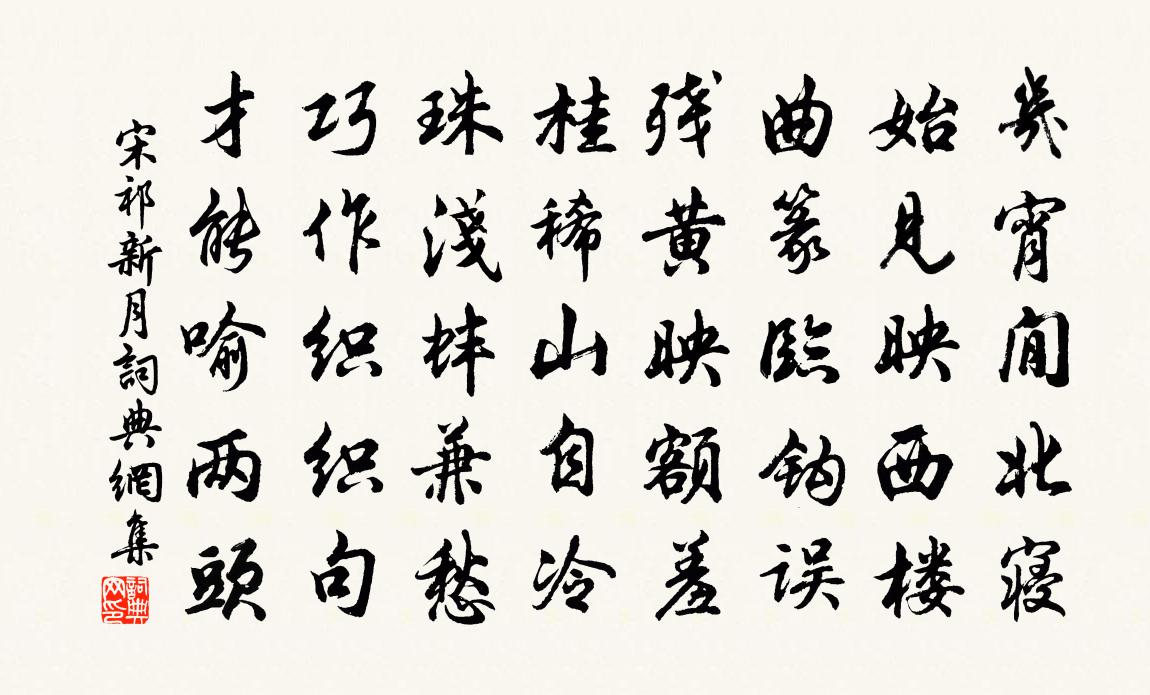 幾宵閒北寝
始見映西楼
曲篆臨鈎误
残黄映额羞
桂稀山自冷
珠淺蚌兼愁
巧作织织句
才能喻两頭
宋祁新月詞典網集
詞典网印